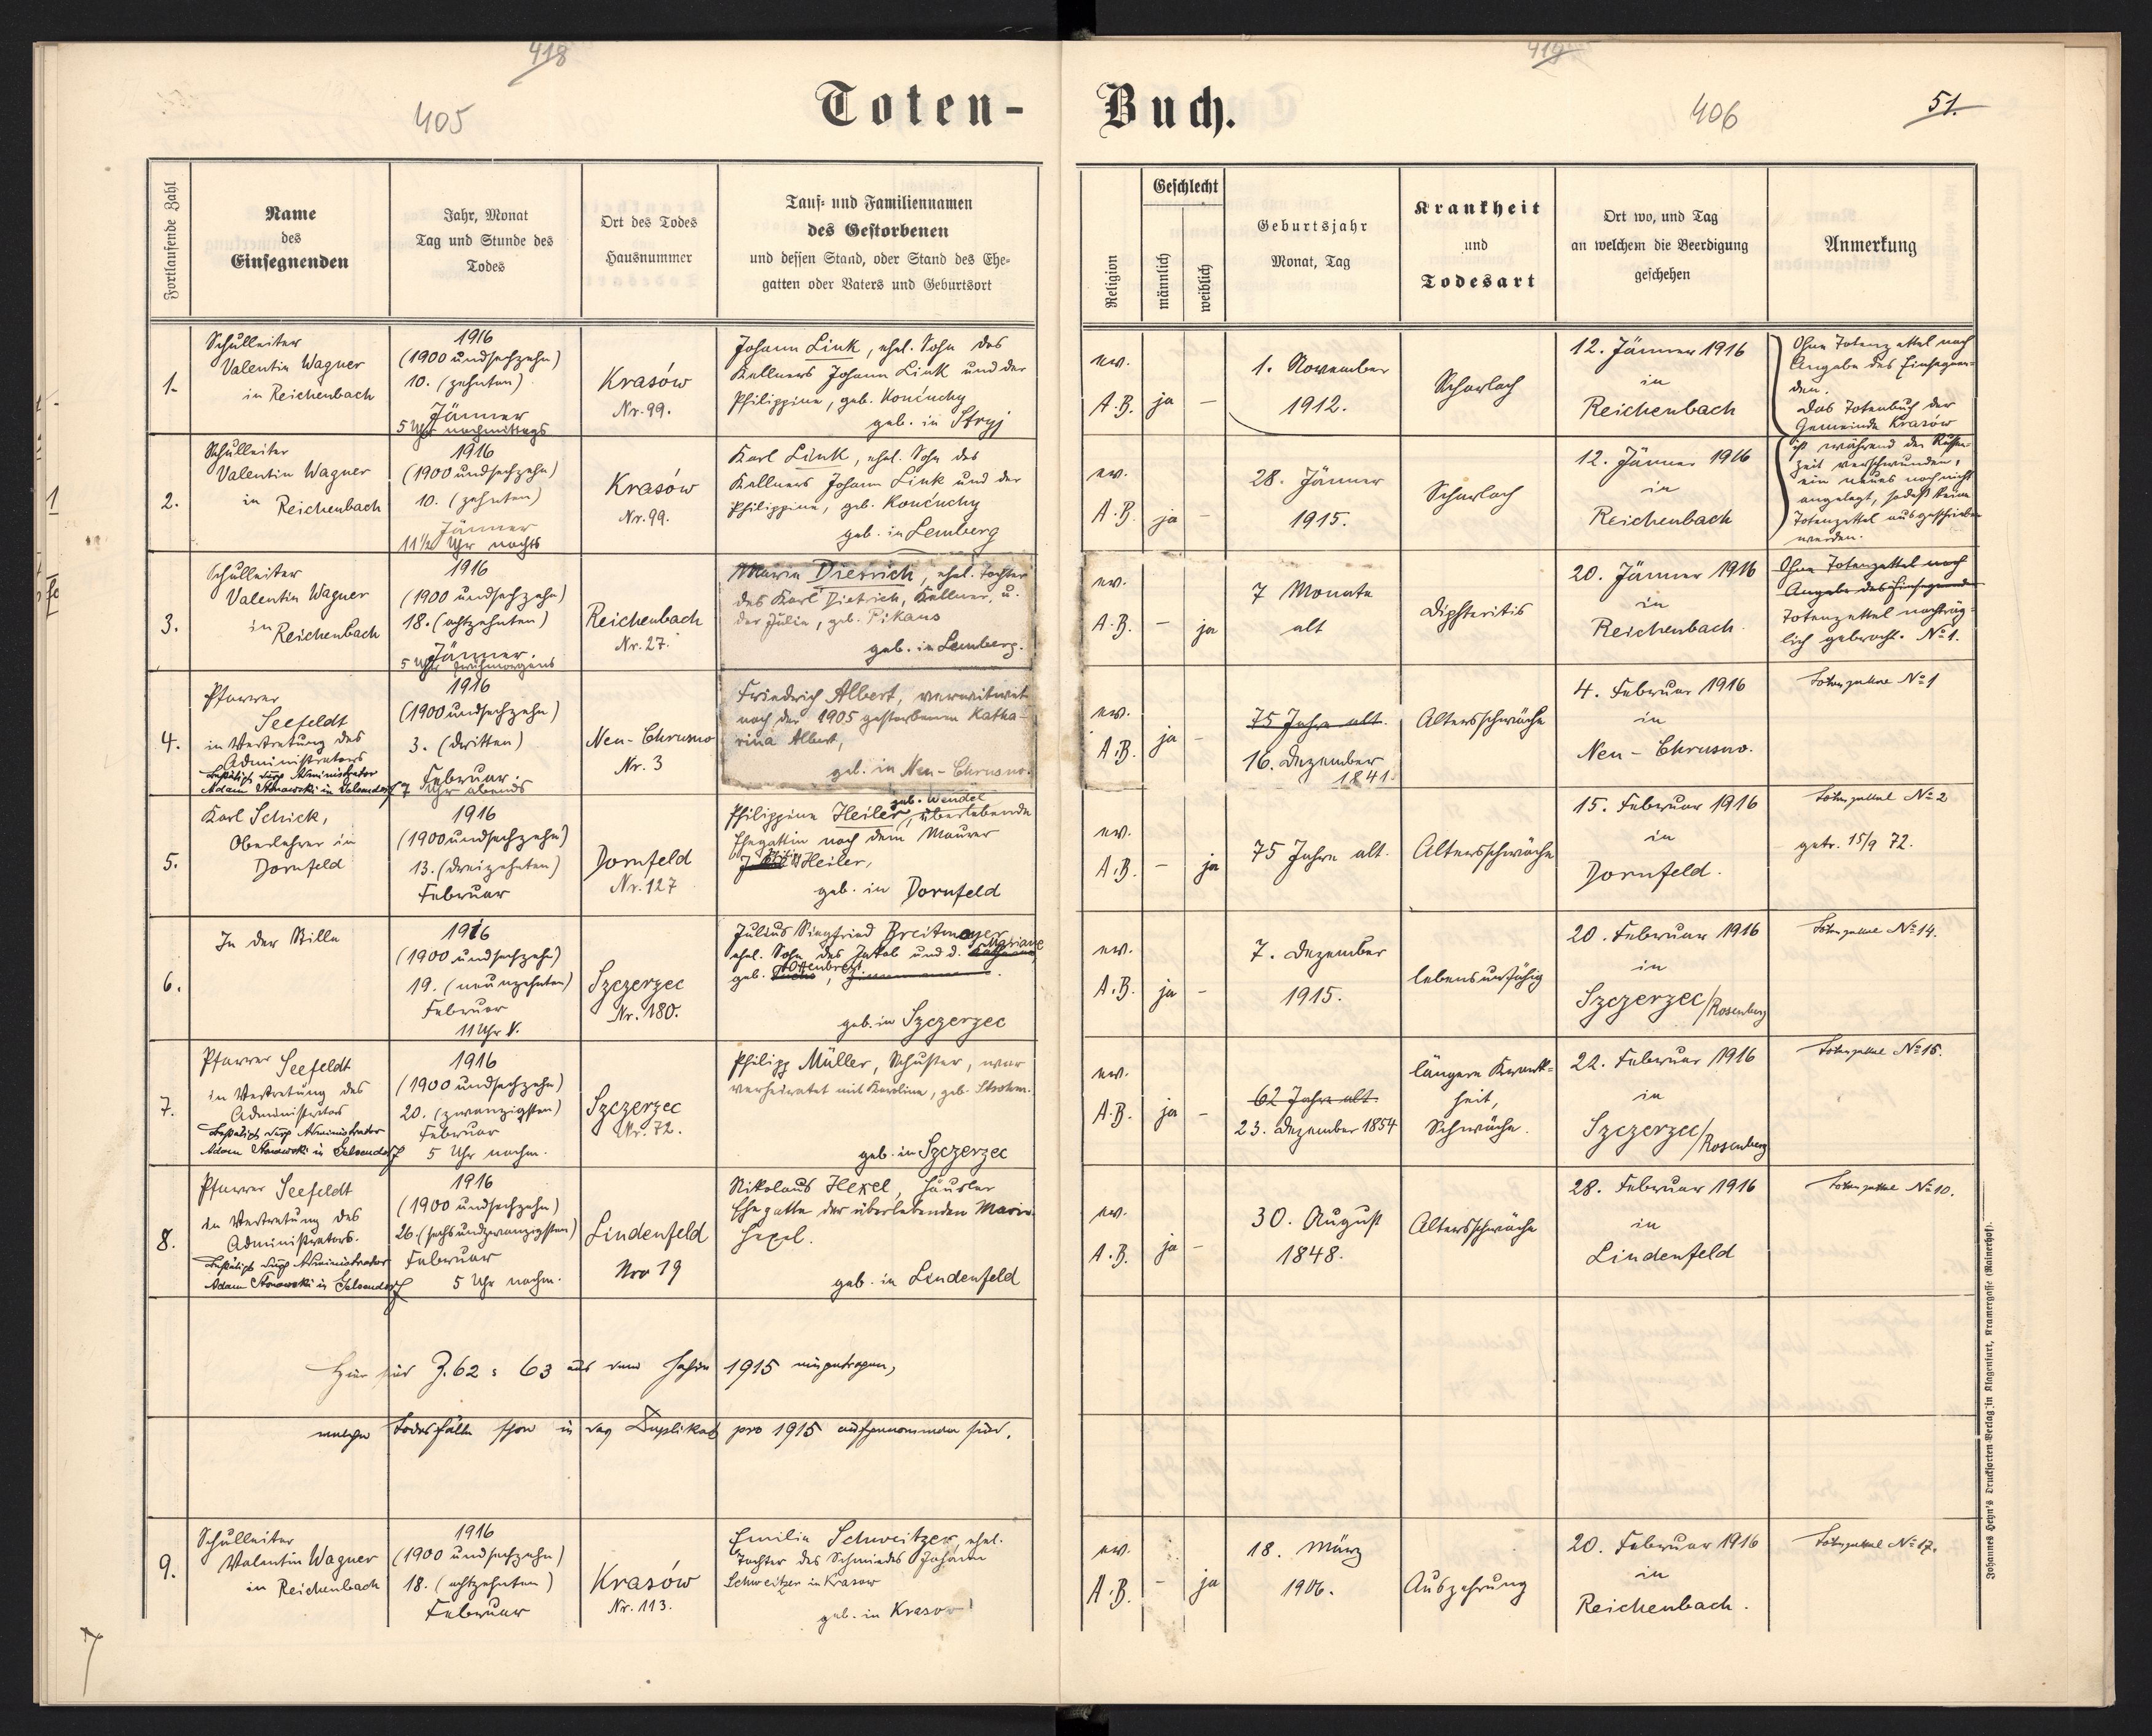 418
419
405
Toten-
Buch.
406
51.
Fortlaufende Zahl
Name
des
Einsegnenden
Jahr, Monat
Tag und Stunde des
Todes
Ort des Todes
Hausnummer
Tauf- und Familiennamen
des Gestorbenen
und dessen Stand, oder Stand des Ehe-
gatten oder Vaters und Geburtsort
Religion
Geschlecht
männlich
weiblich
Geburtsjahr
Monat, Tag
Krankheit
und
Todesart
Ort wo, und Tag
an welchem die Beerdigung
geschehen
Anmerkung
1.
Schulleiter
Valentin Wagner
in Reichenbach
1916
(1900 undsechzehn)
10. (zehnten)
Jänner
5 Uhr nachmittags
Krasów
Nr. 99.
Johann Link, ehel. Sohn des
Kellners Johann Link und der
Philippine, geb. Kończuchy
geb. in Stryj
ev.
A.B.
ja
-
1. November
1912.
Scharlach
12. Jänner 1916
in
Reichenbach
Ohne Totenzettel nach
Angabe des Einsegnen-
den.
Das Totenbuch der
Gemeinde Krasów
2.
Schulleiter
Valentin Wagner
in Reichenbach
1916
(1900 undsechzehn)
10. (zehnten)
Jänner
11½ Uhr nachts
Krasów
Nr. 99.
Karl Link, ehel. Sohn des
Kellners Johann Link und der
Philippine, geb. Kończuchy
geb. in Lemberg
ev.
A.B.
ja
-
28. Jänner
1915.
Scharlach
12. Jänner 1916
in
Reichenbach
ist während der Russen-
zeit verschwunden,
ein neues noch nicht
angelegt, sodaß keine
Totenzettel ausgeschrieben
werden.
3.
Schulleiter
Valentin Wagner
in Reichenbach
1916
(1900 undsechzehn)
18. (achtzehnten)
Jänner.
5 Uhr frühmorgens
Reichenbach
Nr. 27.
Maria Dietrich, ehel. Tochter
des Karl Dietrich, Kellner, u.
der Julia, geb. Pikaus
geb. in Lemberg.
ev.
A.B.
-
ja
7 Monate
alt
Diphteritis
20. Jänner 1916
in
Reichenbach.
Ohne Totenzettel nach
Angabe des Einsegnenden
Totenzettel nachträg-
lich gebracht. No 1.
4.
Pfarrer
Seefeldt
in Vertretung des
Administrators
Bestätigt durch Administrator
Adam Stonawski in Gelsendorf
1916
(1900 undsechzehn)
3. (dritten)
Februar.
7 Uhr abends
Neu-Chrusno
Nr. 3
Friedrich Albert, verwitwet
nach der 1905 gestorbenen Katha-
rina Albert,
geb. in Neu-Chrusno.
ev.
A.B.
ja
-
75 Jahre alt.
16. Dezember
1841.
Altersschwäche
4. Februar 1916
in
Neu-Chrusno.
Totenzettel No 1
5.
Karl Schick,
Oberlehrer in
Dornfeld
1916
(1900 undsechzehn)
13. (dreizehnten)
Februar
Dornfeld
Nr. 127
geb. Wendel
Philippine Heiler, überlebende
Ehegattin nach dem Maurer
Heiler,
geb. in Dornfeld
ev.
A.B.
-
ja
75 Jahre alt.
Altersschwäche
15. Februar 1916
in
Dornfeld.
Totenzettel No 2
getr. 15/9 72.
6.
In der Stille
1916
(1900 undsechzehn)
19. (neunzehnten)
Februar
11 Uhr V.
Szczerzec
Nr. 180.
Julius Siegfried Breitmayer
ehel. Sohn des Jakob und d. Mariane
geb.
geb. in Szczerzec
ev.
A.B.
ja
-
7. Dezember
1915.
lebensunfähig
20. Februar 1916
in
Szczerzec/Rosenberg
Totenzettel No 14.
7.
Pfarrer Seefeldt
in Vertretung des
Administrators
Bestätigt durch Administrator
Adam Stonawski in Gelsendorf
1916
(1900 undsechzehn)
20. (zwanzigsten)
Februar
5 Uhr nachm.
Szczerzec
Nr. 72.
Philipp Müller, Schuster, war
verheiratet mit Karoline, geb. Strohm.
geb. in Szczerzec
ev.
A.B.
ja
-
62 Jahre alt.
23. Dezember 1854
längere Krank-
heit,
Schwäche.
22. Februar 1916
in
Szczerzec/Rosenberg
Totenzettel No 15.
8.
Pfarrer Seefeldt
in Vertretung des
Administrators.
Bestätigt durch Administrator
Adam Stonawski in Gelsendorf
1916
(1900 undsechzehn)
26. (sechsundzwanzigsten)
Februar
5 Uhr nachm.
Lindenfeld
Nro 19
Nikolaus Hexel, Häusler
Ehegatte der überlebenden Maria
Hexel.
geb. in Lindenfeld
ev.
A.B.
ja
-
30. August
1848.
Altersschwäche
28. Februar 1916
in
Lindenfeld
Totenzettel No 10.
Hier sind Z. 62 : 63 aus dem Jahre 1915 eingetragen,
welche Todesfälle schon in das Duplikat pro 1915 aufgenommen sind.
9.
Schulleiter
Valentin Wagner
in Reichenbach
1916
(1900 undsechzehn)
18. (achtzehnten)
Februar
Krasów
Nr. 113.
Emilie Schweitzer, ehel.
Tochter des Schmiedes Johann
Schweitzer in Krasow
geb. in Krasow
ev.
A.B.
-
ja
18. März
1906.
Auszehrung
20. Februar 1916
in
Reichenbach.
Totenzettel No 17.
Johannes Heyn's Drucksorten Verlag in Klagenfurt, Kramergasse (Rainerhof).
7